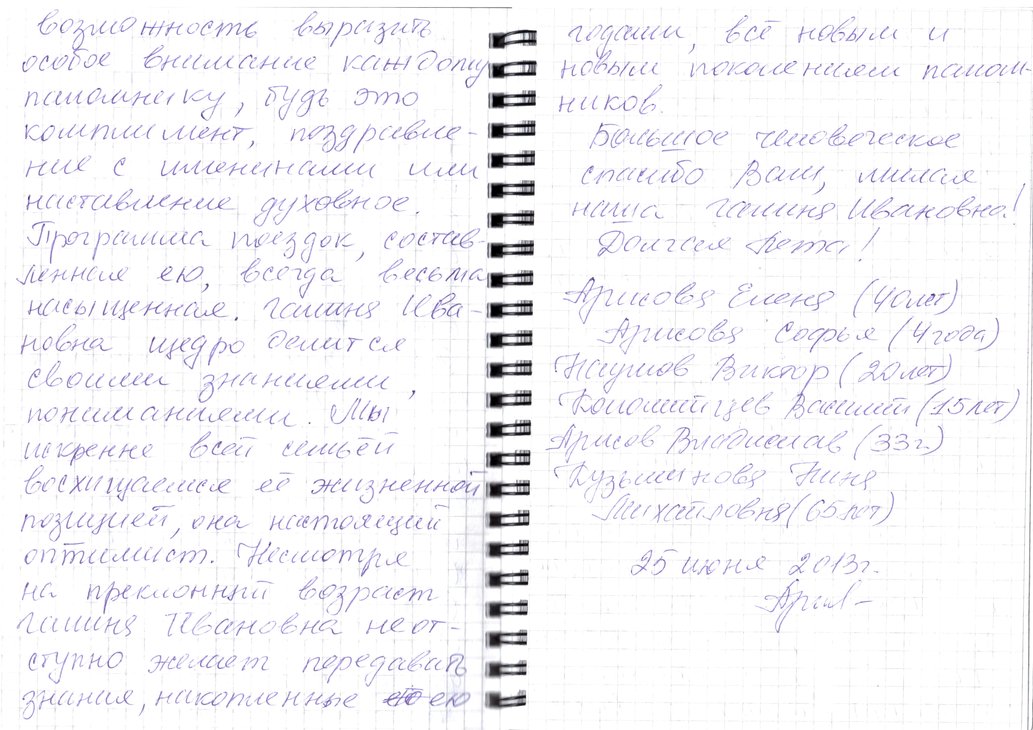 возможность выразить
особое внимание каждому
паломнику, будь это
комплимент, поздравле-
ние с именинами или
наставление духовное.
Программа поездок, состав-
ленная ею, всегда весьма
насыщенная. Галина Ива-
новна щедро делится
своими знаниями,
пониманиями. Мы
искренне всей семьёй
восхищаемся её жизненной
позицией, она настоящий
оптимист. Несмотря
на преклонный возраст
Галина Ивановна неот-
ступно желает передавать
знания, накопленные ею
годами, всё новым и
новым поколениям палом-
ников.
Большое человеческое
спасибо Вам, милая
наша Галина Ивановна!
Долгая лета!
Арисова Елена (40 лет)
Арисова Софья (4 года)
Наумов Виктор (20 лет)
Коломийцев Василий (15 лет)
Арисов Владислав (33 г.)
Кузьминова Нина
Михайловна (65 лет)
25 июня 2013 г.